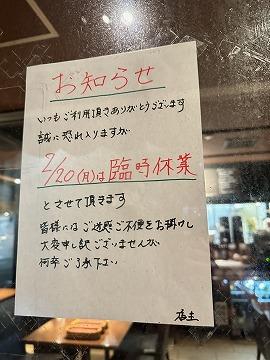 お知らせ
いつもご利用頂きありがとうございます
誠に恐れ入りますが
2/20(月)は臨時休業
とさせて頂きます
皆様にはご迷惑ご不便をお掛けし
大変申し訳ございませんが
何卒ご了承下さい
店主